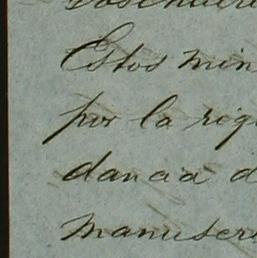 Estos min
por la riq
dancia d
manuscr